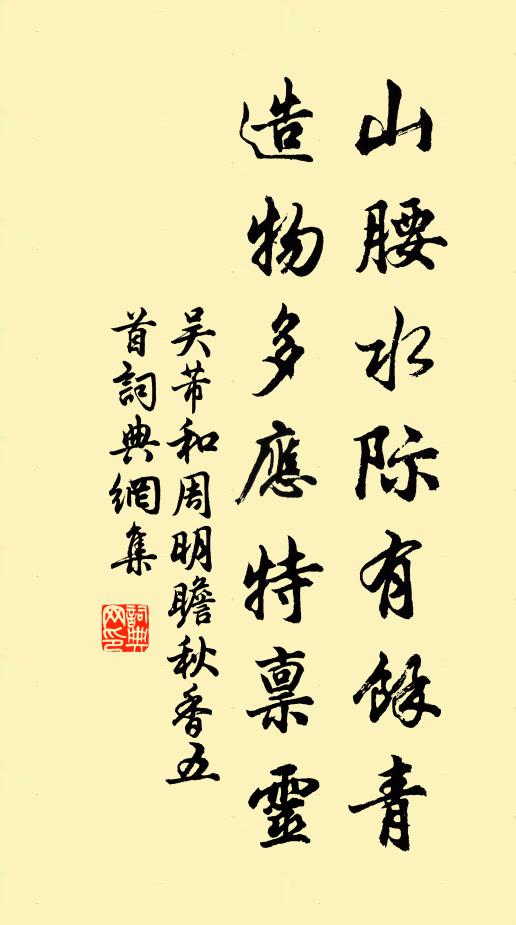 山腰水际有餘青
造物多應特禀靈
吴芾和周明瞻秋香五
首詞典網集
詞典
网印